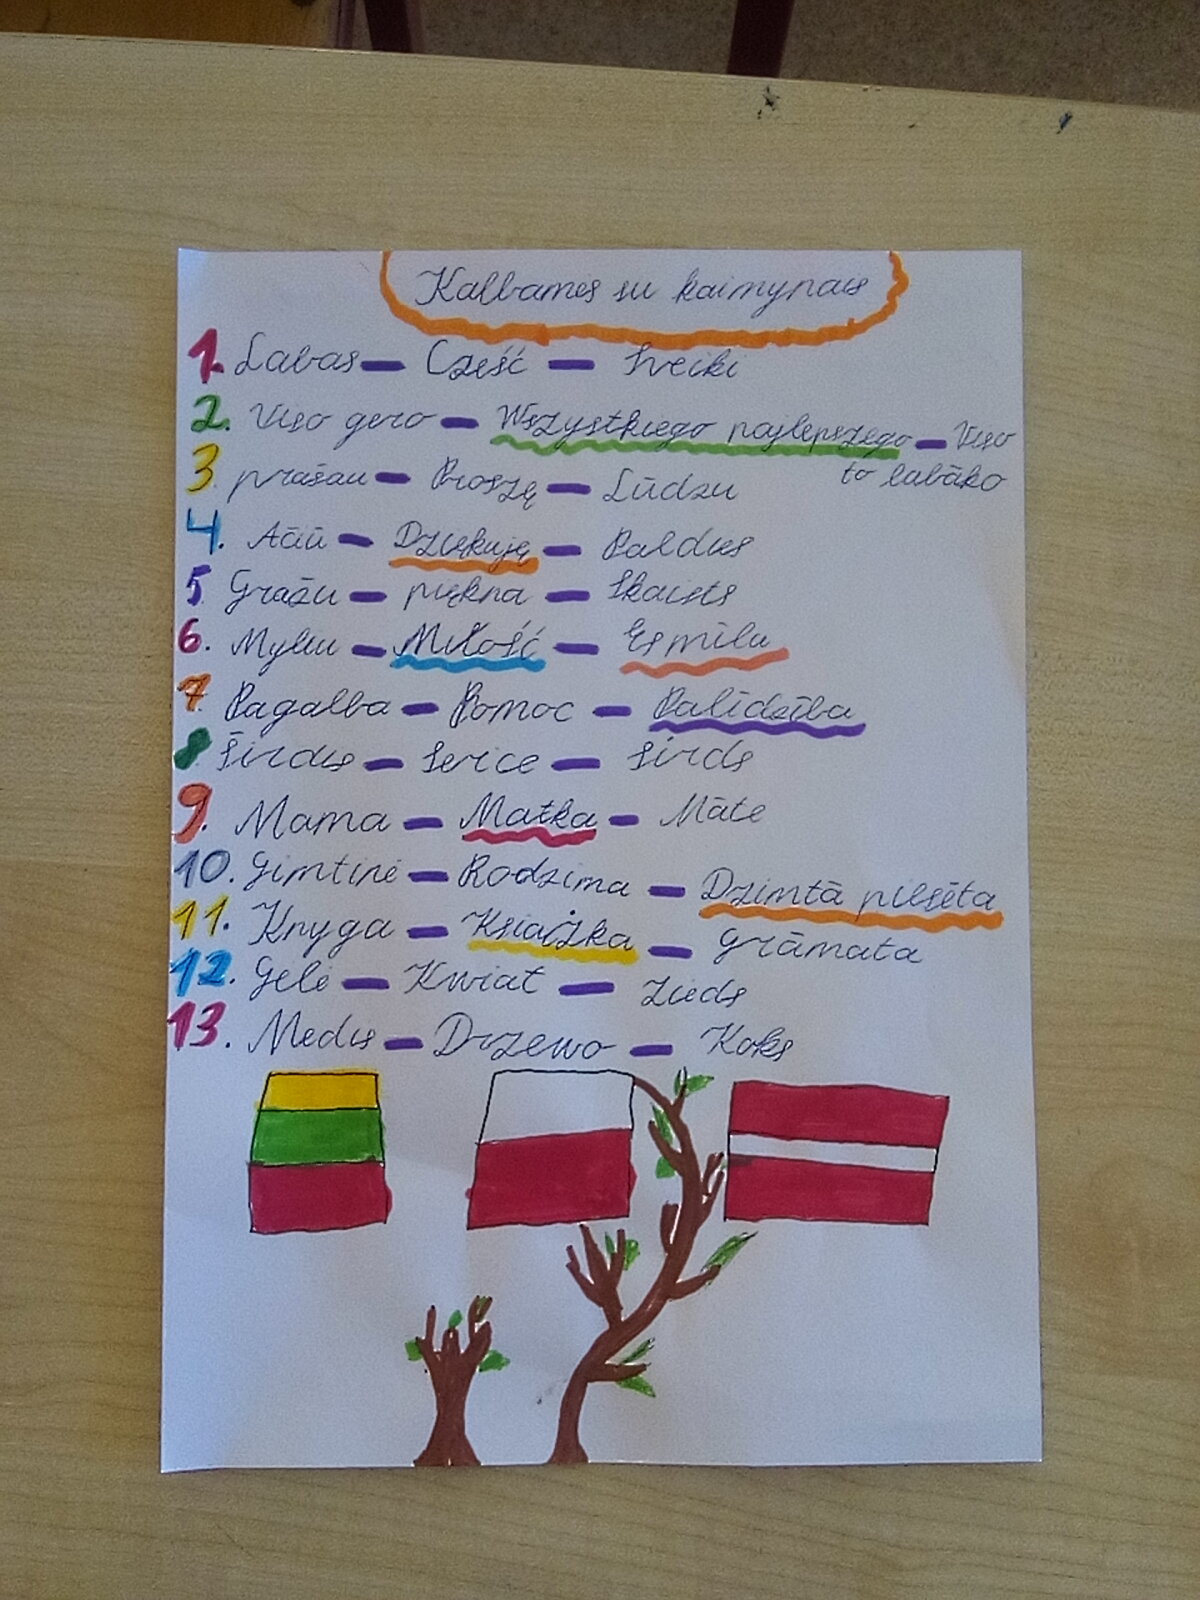 Kalbamės su kaimynais
1. Labas - Cześć - Sveiki
2. Viso gero - Wszystkiego najlepszego - Viso
to labāko
3 prašau - Proszę - Lūdzu
4. Ačiū - Dziękuję - Paldies
5 Gražu - piękna - Skaists
6. Myliu - Miłość - Es mīlu
7 Pagalba - Pomoc - Palīdzība
8 Širdis - Serce - sirds
9. Mama - Matka - Māte
10. Gimtinė - Rodzima - Dzimtā pilsēta
11. Knyga - Książka - grāmata
12. Gėlė - Kwiat - Zieds
13. Medis - Drzewo - Koks